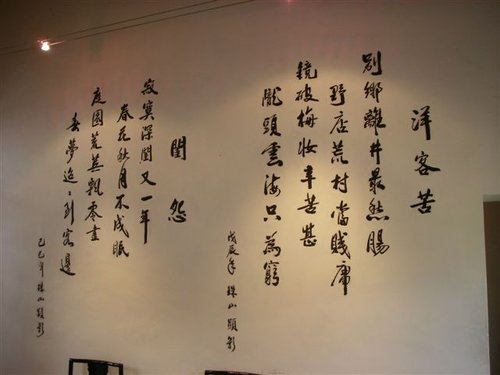 洋客苦
別鄉離井最愁腸
野店荒村當賤庸
鏡破梅妝辛苦甚
隴頭雲海只為窮
戊辰年 珠山顯影
閨怨
寂寞深閨又一年
春花秋月不成眠
庭園荒蕪飄零盡
春夢迢々到客邊
己巳年 珠山顯影